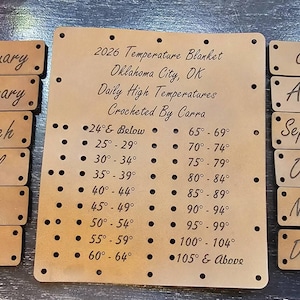 2026 Temperature Blanket
Oklahoma City, OK
Daily High Temperatures
Crocheted By Carra
24° & Below
65° - 69°
25° - 29°
70° - 74°
30° - 34°
75° - 79°
35° - 39°
80° - 84°
40° - 44°
85° - 89°
45° - 49°
90° - 94°
50° - 54°
95° - 99°
55° - 59°
100° - 104°
60° - 64°
105° & Above
uary
ary
h
Sep